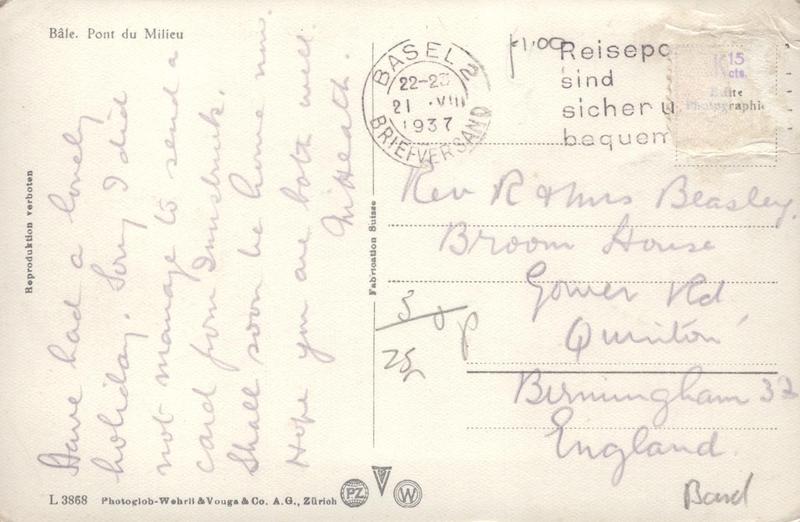 Bâle. Pont du Milieu
Have had a lovely
holiday. Sorry I did
not manage to send a
card from Innsbruck.
Shall soon be home now.
Hope you are both well.
In Health.
Reproduktion verboten
L 3868 Photoglob-Wehrli & Vouga & Co. A.G., Zürich
PZ
V
W
Fabrication Suisse
BASEL 2
22-23
21 . VIII
1937
BRIEFVERSAND
£1.00
Reisepo
sind
sicher u
bequem
15
cts.
Photographie
Rev R & Mrs Beasley.
Broom House
Gower Rd
Quinton
Birmingham 32
England.
50p
Basel